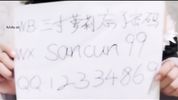 WB 三寸萝莉
WX sancun99
QQ 12334869